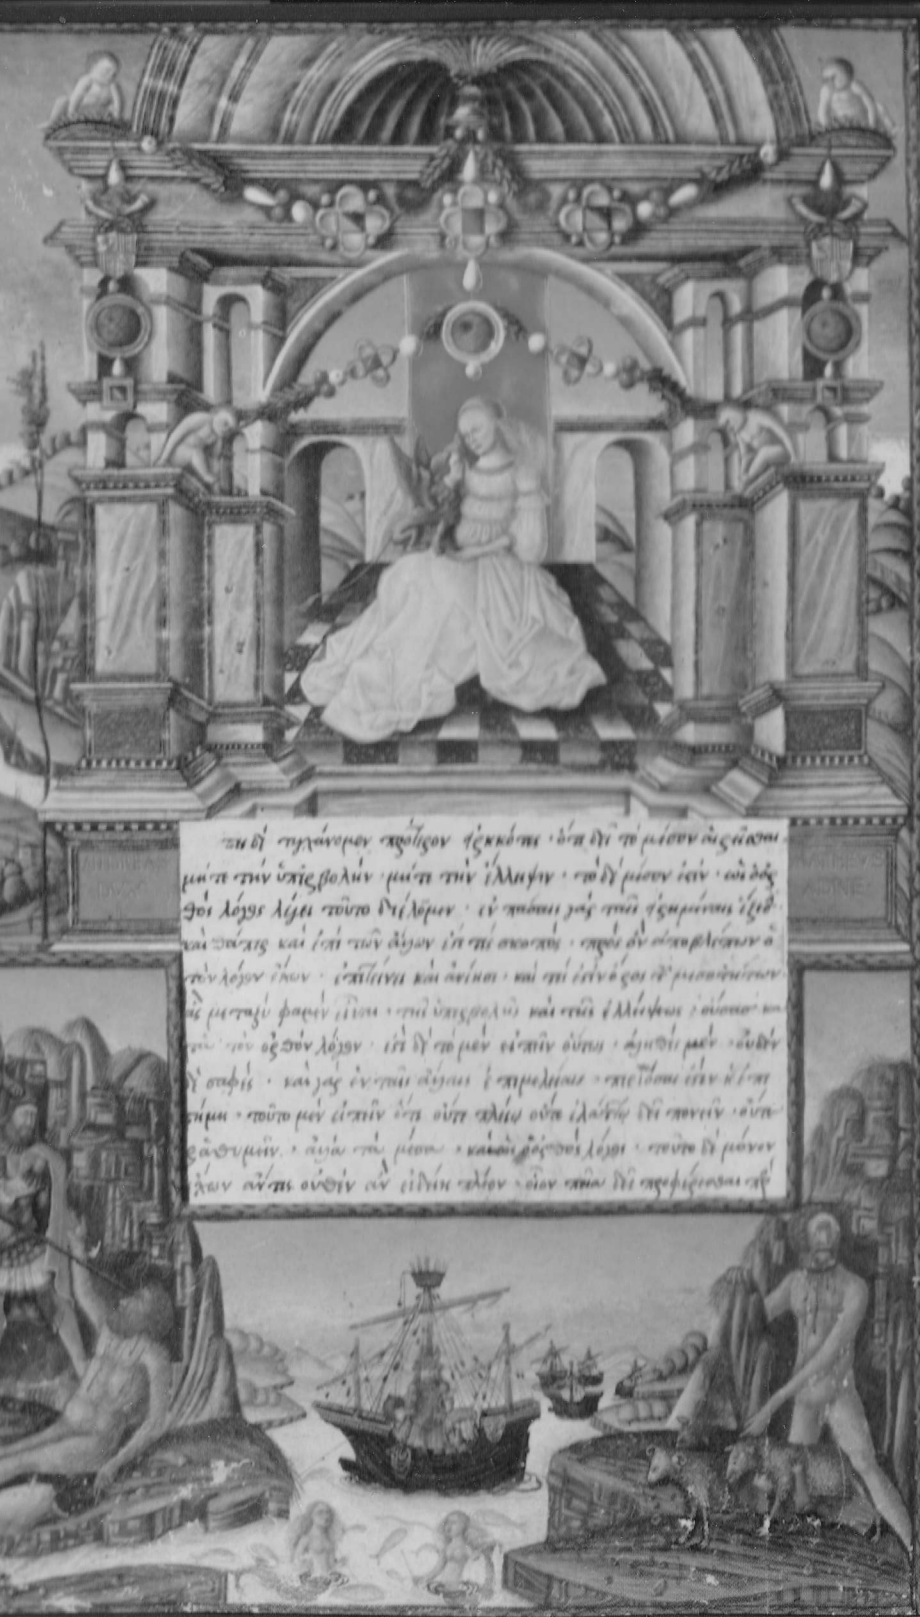 ἐπεὶ δὲ τυγχάνομεν πρότερον εἰρηκότες · ὅτι δεῖ τὸ μέσον αἱρεῖσθαι ·
μήτε τὴν ὑπερβολὴν · μήτε τὴν ἔλλειψιν · τὸ δὲ μέσον ἐστὶν · ὡς ὁ ὀρ
θὸς λόγος λέγει τοῦτο διέλωμεν · ἐν πάσαις γὰρ ταῖς εἰρημέναις ἕξεσι ·
καθάπερ καὶ ἐπὶ τῶν ἄλλων ἔστι τις σκοπὸς · πρὸς ὃν ἀποβλέπων ὁ
τὸν λόγον ἔχων · ἐπιτείνει καὶ ἀνίησι · καὶ τίς ἐστιν ὅρος τῶν μεσοτήτων ·
ἃς μεταξύ φαμεν εἶναι · τῆς ὑπερβολῆς καὶ τῆς ἐλλείψεως · οὔσας κα
τὰ τὸν ὀρθὸν λόγον · ἔστι δὲ τὸ μὲν εἰπεῖν οὕτως · ἀληθὲς μὲν · οὐδὲν
δὲ σαφές · καὶ γὰρ ἐν ταῖς ἄλλαις ἐπιμελείαις ·
τοῦτο μὲν εἰπεῖν ὅτι οὔτε πλείω οὔτε ἐλάττω δεῖ πονεῖν · οὔτε
ῥαθυμεῖν · ἀλλὰ τὰ μέσα · καὶ ὡς ὁ ὀρθὸς λόγος · τοῦτο δὲ μόνον
ἔχων ἄν τις οὐθὲν ἂν εἰδείη πλέον · οἷον ποῖα δεῖ προσφέρεσθαι πρὸ
ANDREAS